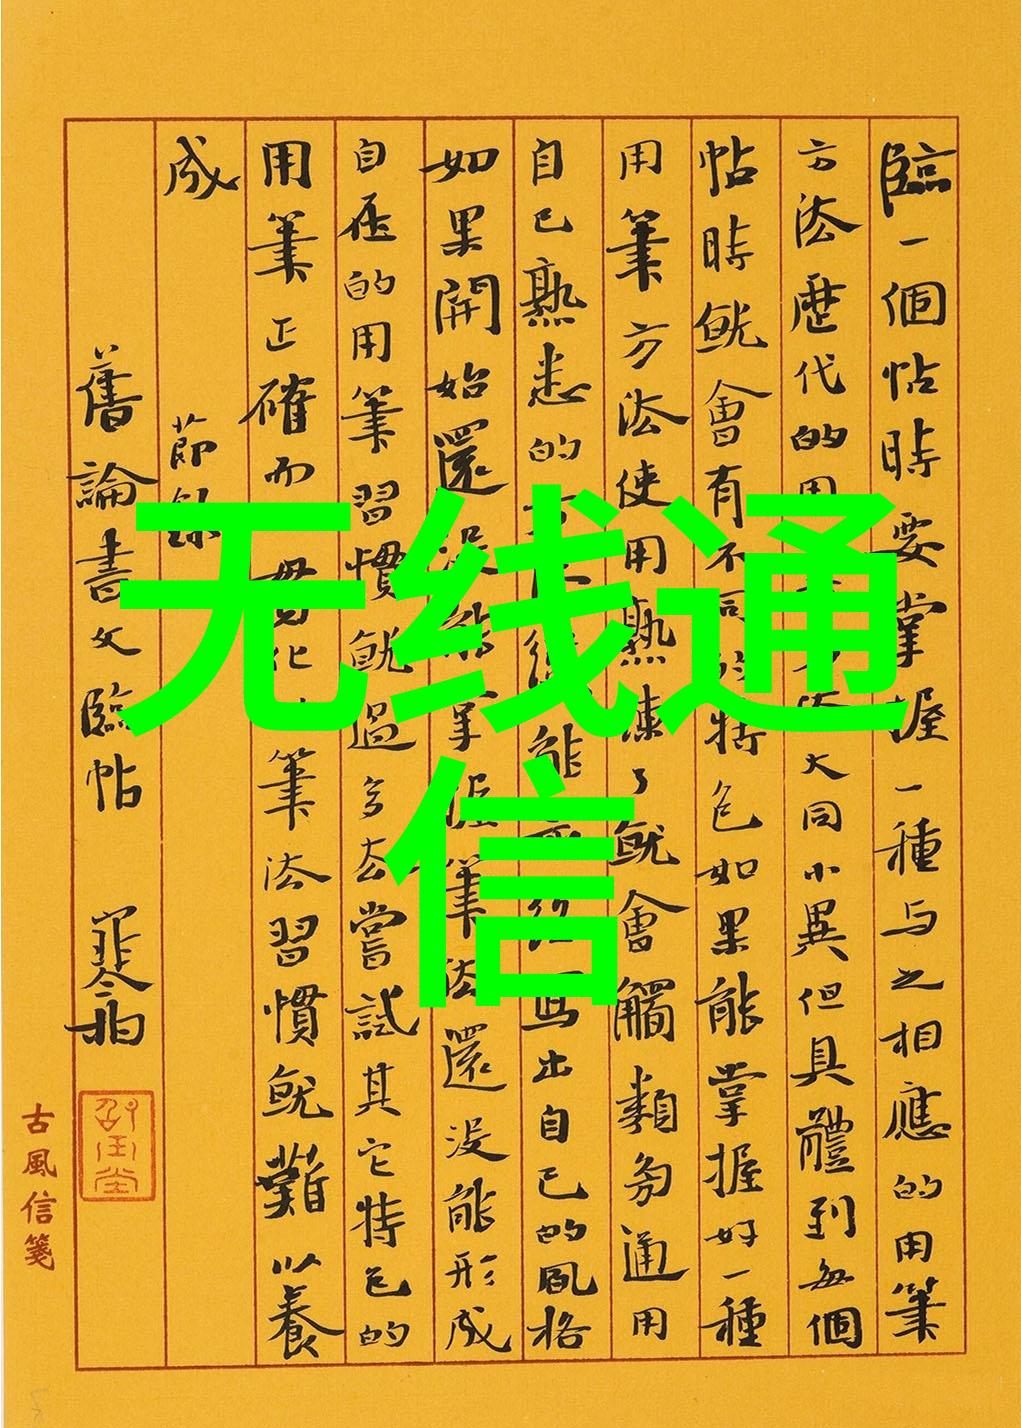 臨一個帖時要掌握一種与之相應的用筆
方法歷代的用法大同小異但具體到每個
帖時就會有不同的特色如果能掌握好一種
用筆方法使用熟練了就會觸類旁通用
自己熟悉的能寫出自己的風格
如果開始還沒能掌握筆法還沒能形成
自在的用筆習慣就過多去嘗試其它特色的
用筆正確而化筆法習慣就難以養
成 節錄
舊論書文臨帖
古風信箋
无线通
信